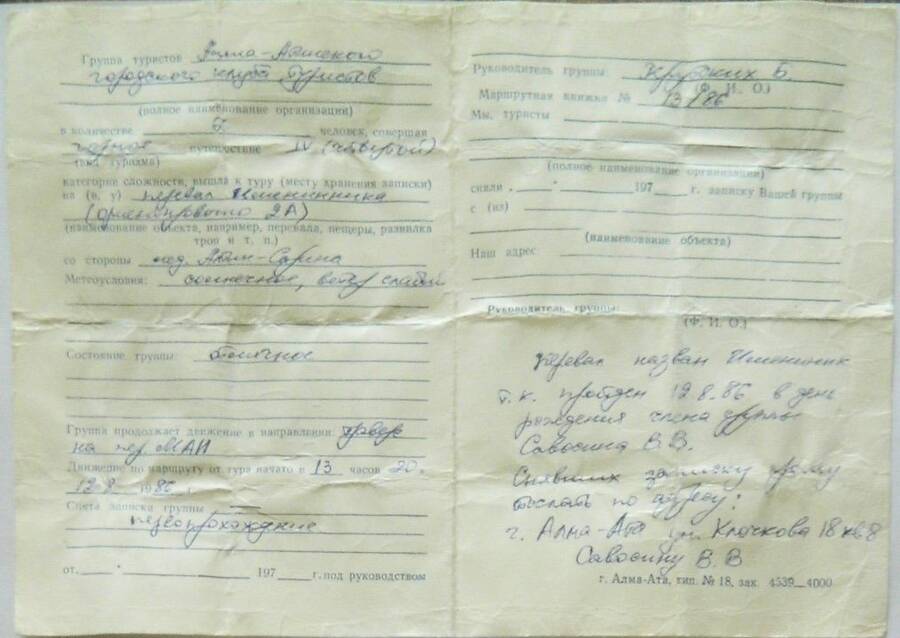 Группа туристов Алма-Атинского
городского клуба Туристов
(полное наименование организации)
в количестве 7 человек, совершая
горное путешествие IV (четвертой)
(вид туризма)
категории сложности, вышла к туру (месту хранения записки)
на (в, у) перевал Именинника
(ориентировочно 2А)
(наименование объекта, например, перевала, пещеры, развилка
троп и т. п.)
со стороны лед.
Метеоусловия: солнечное, ветер слабый
Состояние группы: отличное
Группа продолжает движение в направлении: траверс
на пер. МАИ
Движение по маршруту от тура начато в 13 часов «20»
12.8 1986 г.
Снята записка группы
первопрохождение
от. . 197 г. под руководством
Руководитель группы: Крупских Б.
(Ф. И. О.)
Маршрутная книжка № 13/86
Мы, туристы
(полное наименование организации)
сняли . . 197 г. записку Вашей группы
с (из)
(наименование объекта)
Наш адрес
Руководитель группы:
(Ф. И. О.)
перевал назван Именинник
т.к. пройден 12.8.86 в день
рождения члена группы
Савосина В.В.
Снявших записку прошу
выслать по адресу:
г. Алма-Ата ул. Клочкова 18 кв 8
Савосину В. В
г. Алма-Ата, тип. № 18, зак. 4539—4000